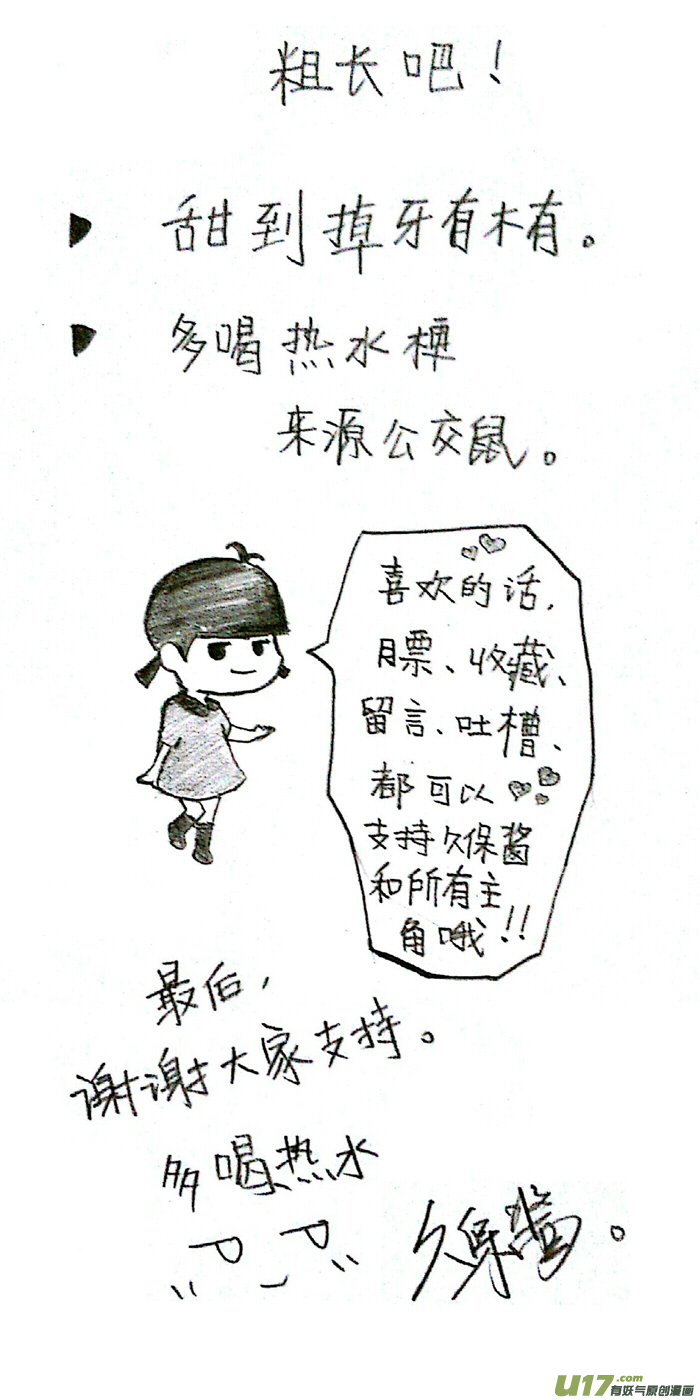 粗长吧！
甜到掉牙有木有。
多喝热水梗
来源公交鼠。
喜欢的话，
月票、收藏、
留言、吐槽、
都可以
支持久保酱
和所有主
角哦！！
最后，
谢谢大家支持。
多喝热水
久保酱。
U17.com
有妖气原创漫画